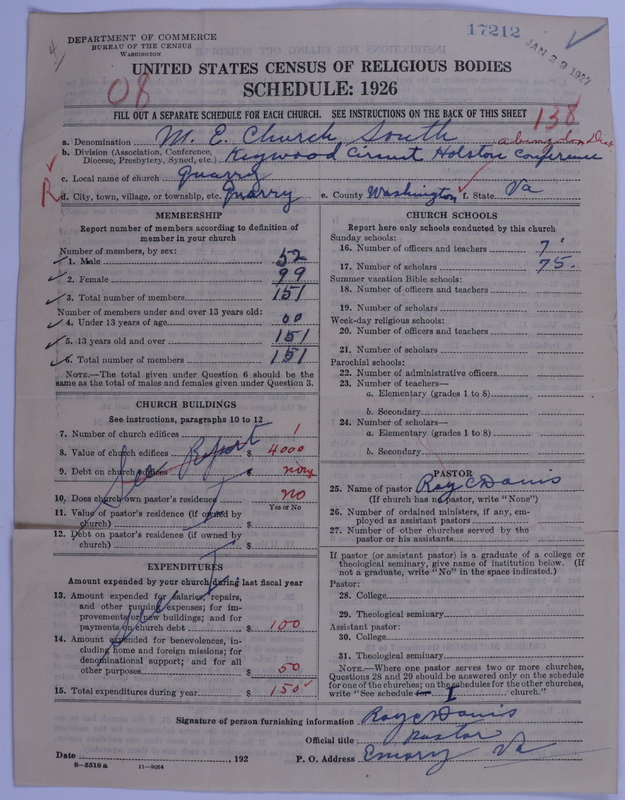 17212
JAN 29 1927
DEPARTMENT OF COMMERCE
BUREAU OF THE CENSUS
WASHINGTON
UNITED STATES CENSUS OF RELIGIOUS BODIES
SCHEDULE: 1926
08
138
FILL OUT A SEPARATE SCHEDULE FOR EACH CHURCH. SEE INSTRUCTIONS ON THE BACK OF THIS SHEET
a. Denomination M. E. Church South
abingdon Dist
b. Division (Association, Conference, Diocese, Presbytery, Synod, etc.) Keywood Circuit Holston Conference
c. Local name of church Quarry
R
d. City, town, village, or township, etc. Quarry e. County Washington f. State Va
MEMBERSHIP
Report number of members according to definition of
member in your church
Number of members, by sex:
1. Male 52
2. Female 99
3. Total number of members 151
Number of members under and over 13 years old:
4. Under 13 years of age 00
5. 13 years old and over 151
6. Total number of members 151
NOTE.—The total given under Question 6 should be the
same as the total of males and females given under Question 3.
CHURCH BUILDINGS
See instructions, paragraphs 10 to 12
7. Number of church edifices 1
8. Value of church edifices $ 4000
9. Debt on church edifices $ none
See Report
10. Does church own pastor's residence? no
Yes or No
11. Value of pastor's residence (if owned by
church) $
12. Debt on pastor's residence (if owned by
church) $
EXPENDITURES
Amount expended by your church during last fiscal year
13. Amount expended for salaries, repairs,
and other running expenses; for im-
provements or new buildings; and for
payments on church debt $ 100
14. Amount expended for benevolences, in-
cluding home and foreign missions; for
denominational support; and for all
other purposes $ 50
15. Total expenditures during year $ 150
CHURCH SCHOOLS
Report here only schools conducted by this church
Sunday schools:
16. Number of officers and teachers 7
17. Number of scholars 75.
Summer vacation Bible schools:
18. Number of officers and teachers
19. Number of scholars
Week-day religious schools:
20. Number of officers and teachers
21. Number of scholars
Parochial schools:
22. Number of administrative officers
23. Number of teachers—
a. Elementary (grades 1 to 8)
b. Secondary
24. Number of scholars—
a. Elementary (grades 1 to 8)
b. Secondary
PASTOR
25. Name of pastor Roy C Davis
(If church has no pastor, write "None")
26. Number of ordained ministers, if any, em-
ployed as assistant pastors
27. Number of other churches served by the
pastor or his assistants
If pastor (or assistant pastor) is a graduate of a college or
theological seminary, give name of institution below. (If
not a graduate, write "No" in the space indicated.)
Pastor:
28. College
29. Theological seminary
Assistant pastor:
30. College
31. Theological seminary
NOTE.—Where one pastor serves two or more churches,
Questions 28 and 29 should be answered only on the schedule
for one of the churches; on the schedules for the other churches,
write "See schedule for I church."
Signature of person furnishing information Roy C Davis
Official title pastor
Date , 192 P. O. Address Emory Va
8—5518 a 11—9054